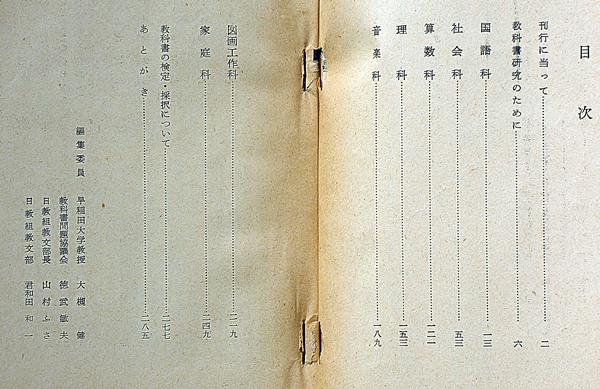 目次
刊行に当って……二
教科書研究のために……六
国語科……一三
社会科……五三
算数科……一二一
理科……一五三
音楽科……一八九
図画工作科……二一九
家庭科……二四九
教科書の検定・採択について……二七七
あとがき……二八五
編集委員
早稲田大学教授 大槻健
教科書問題協議会 徳武敏夫
日教組教文部長 山村ふさ
日教組教文部 君和田和一